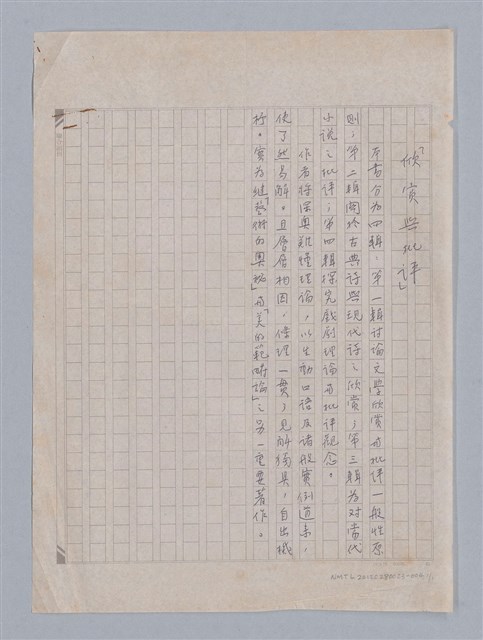 「欣賞與批評」
本書分為四輯：第一輯討論文學欣賞與批評一般性原
則；第二輯關於古典詩與現代詩之欣賞；第三輯為對當代
小說之批評；第四輯探究戲劇理論與批評觀念。
作者將深奧難懂理論，以生動口語及諸般實例道來，
使了然易解。且層層相因，條理一貫，見解獨具，自出機
杼。實為繼「藝術的奧秘」與「美的範疇論」之另一重要著作。